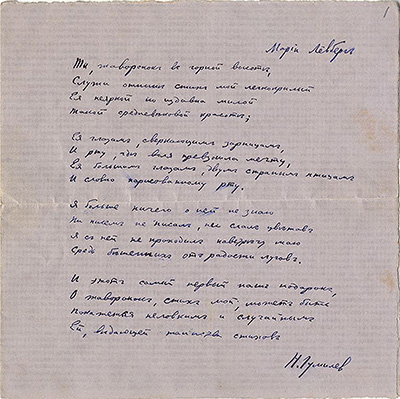 1
Марiи Лёвберг
Ты, жаворонокъ въ горней высотѣ,
Служи отнынѣ стихъ мой легкокрылый
Ея неяркой но издавна милой
Такой средневѣковой красотѣ;
Ея глазамъ, сверкающимъ зарницамъ,
И рту, гдѣ воля превзошла мечту,
Ея большимъ глазамъ, двумъ страннымъ птицамъ
И словно нарисованному рту.
Я больше ничего о ней не знаю
Ни писемъ не писалъ, ни слалъ цвѣтовъ
Я съ ней не проходилъ навстрѣчу маю
Средь бѣшенныхъ отъ радости луговъ.
И этотъ самый первый нашъ подарокъ,
О жаворонокъ, стихъ мой, можетъ быть
Покажется неловкимъ и случайнымъ
Ей, вѣдающей таинства стиховъ
Н. Гумилев